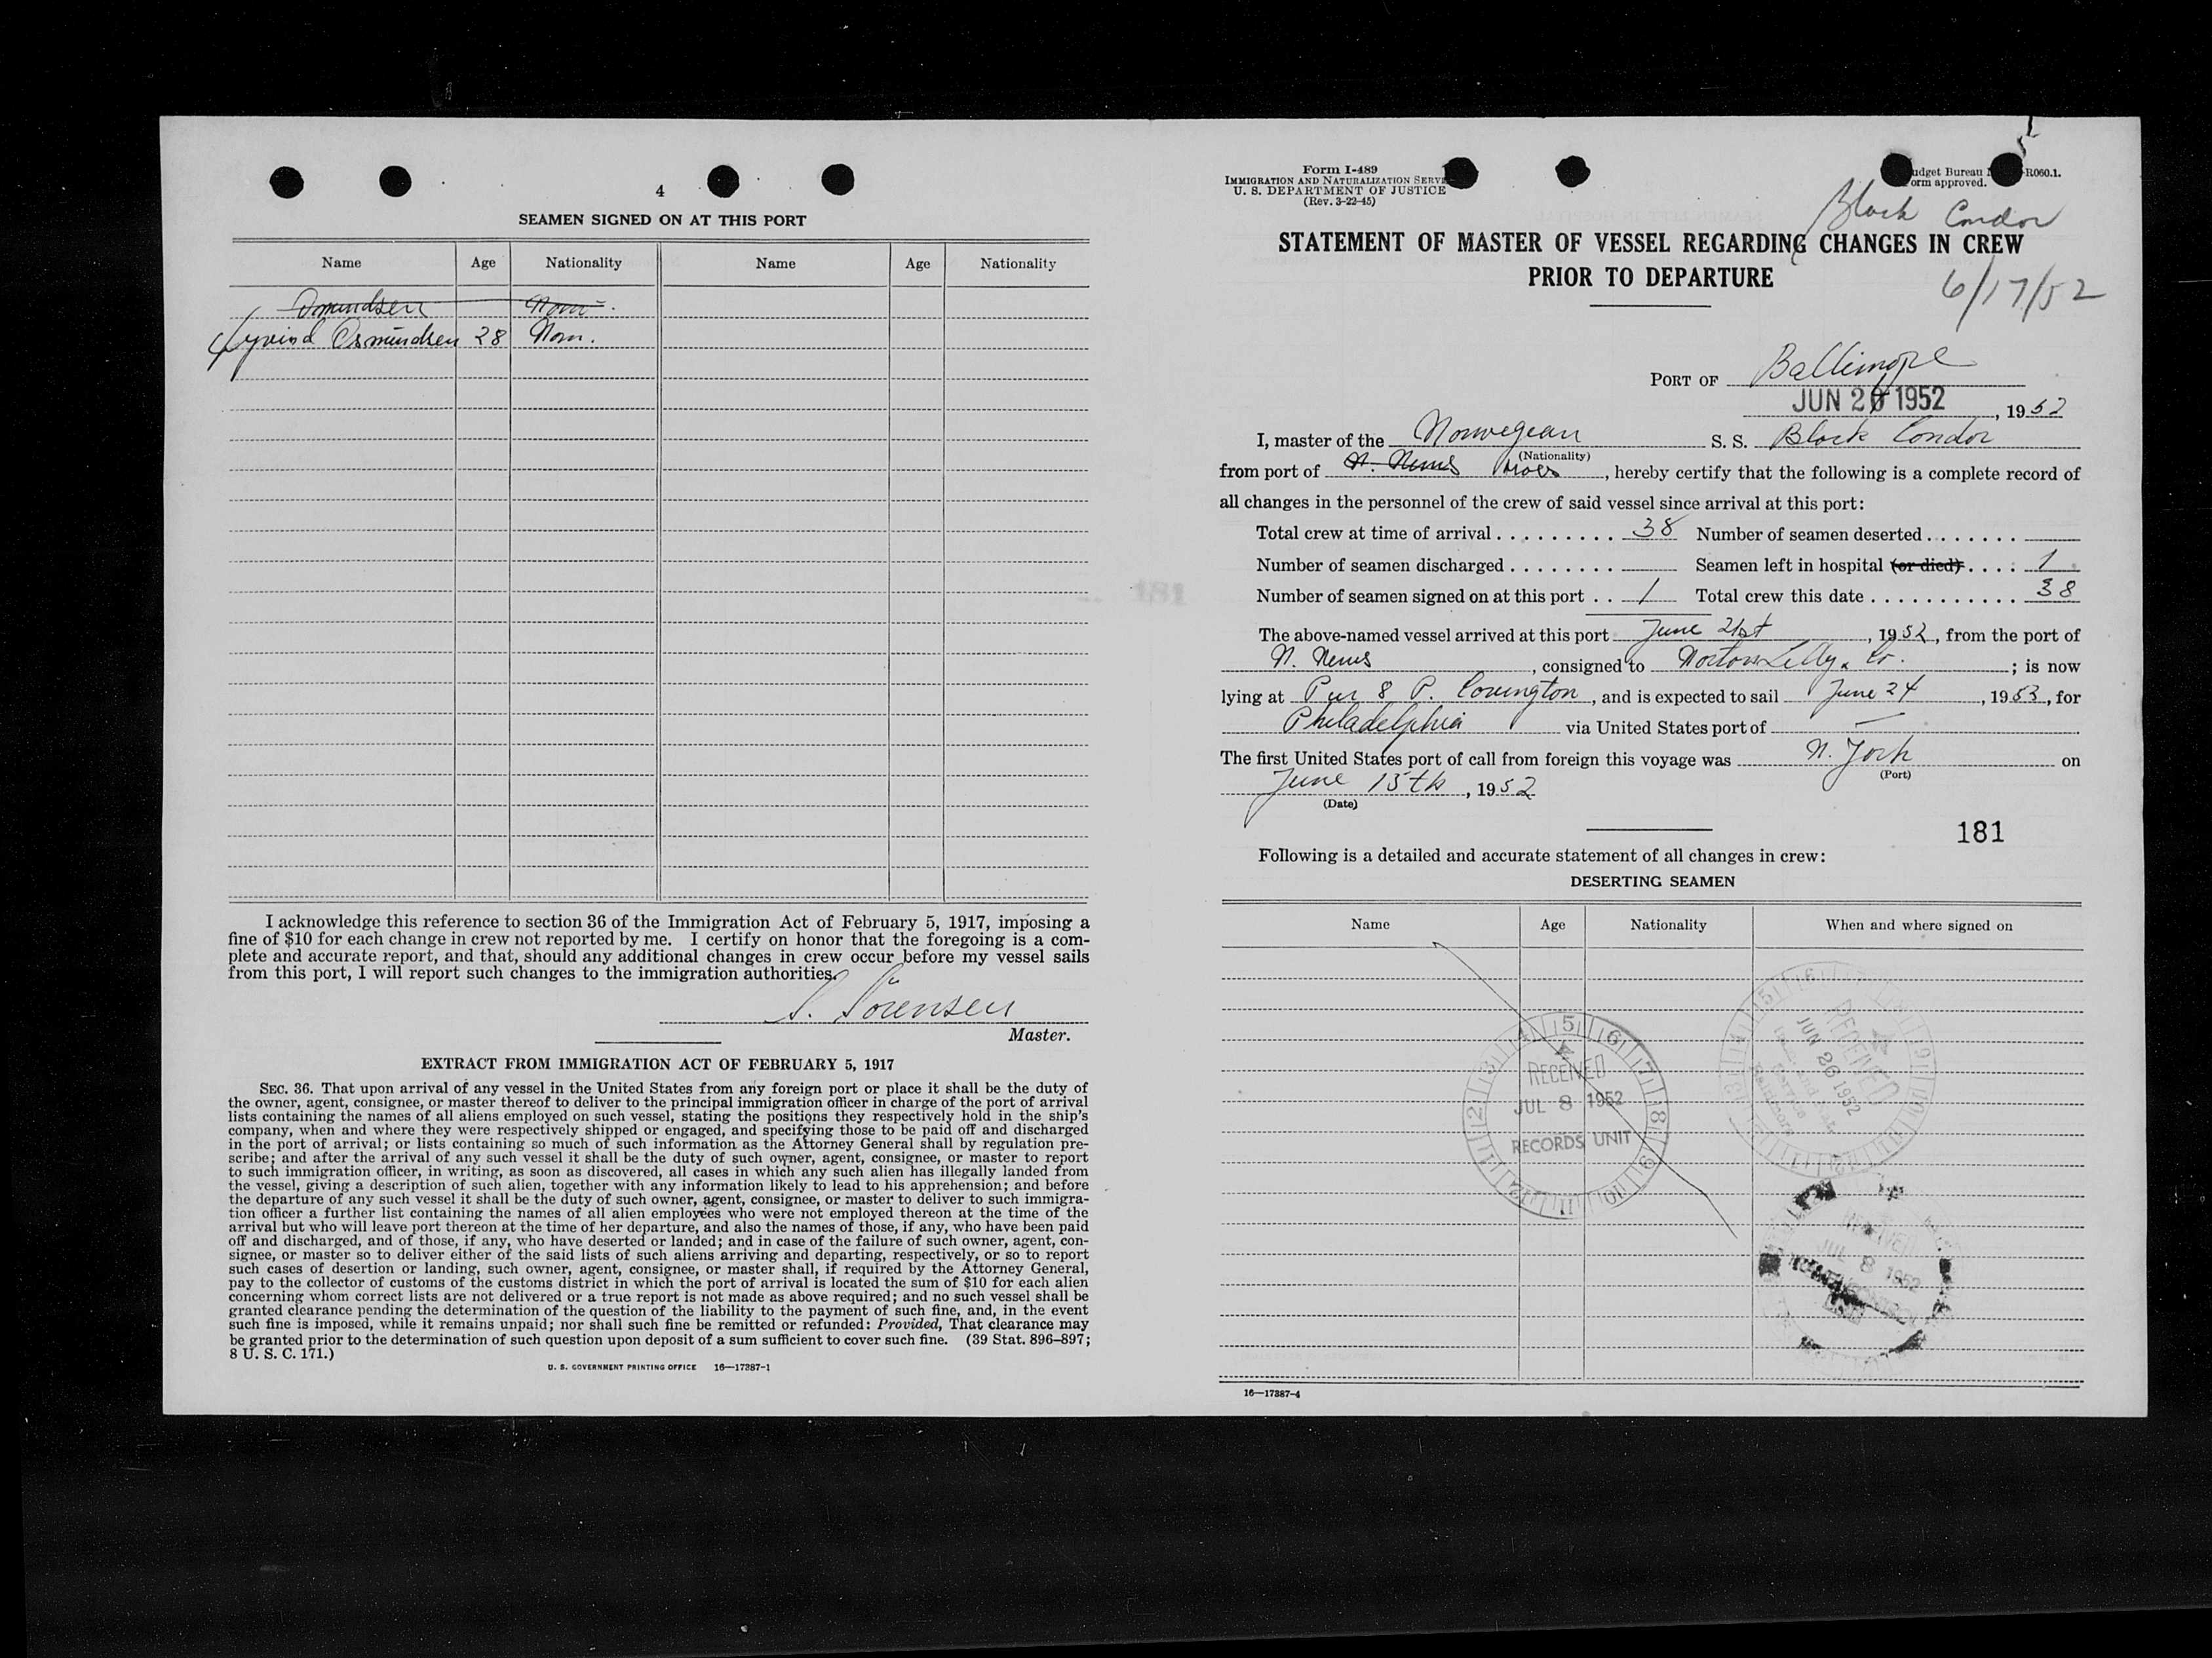 4
SEAMEN SIGNED ON AT THIS PORT
Name Age Nationality Name Age Nationality
Osmundsen Norw.
Øyvind Osmundsen 28 Norw.
I acknowledge this reference to section 36 of the Immigration Act of February 5, 1917, imposing a
fine of $10 for each change in crew not reported by me. I certify on honor that the foregoing is a com-
plete and accurate report, and that, should any additional changes in crew occur before my vessel sails
from this port, I will report such changes to the immigration authorities.
S. Sörensen
Master.
EXTRACT FROM IMMIGRATION ACT OF FEBRUARY 5, 1917
SEC. 36. That upon arrival of any vessel in the United States from any foreign port or place it shall be the duty of
the owner, agent, consignee, or master thereof to deliver to the principal immigration officer in charge of the port of arrival
lists containing the names of all aliens employed on such vessel, stating the positions they respectively hold in the ship's
company, when and where they were respectively shipped or engaged, and specifying those to be paid off and discharged
in the port of arrival; or lists containing so much of such information as the Attorney General shall by regulation pre-
scribe; and after the arrival of any such vessel it shall be the duty of such owner, agent, consignee, or master to report
to such immigration officer, in writing, as soon as discovered, all cases in which any such alien has illegally landed from
the vessel, giving a description of such alien, together with any information likely to lead to his apprehension; and before
the departure of any such vessel it shall be the duty of such owner, agent, consignee, or master to deliver to such immigra-
tion officer a further list containing the names of all alien employees who were not employed thereon at the time of the
arrival but who will leave port thereon at the time of her departure, and also the names of those, if any, who have been paid
off and discharged, and of those, if any, who have deserted or landed; and in case of the failure of such owner, agent, con-
signee, or master so to deliver either of the said lists of such aliens arriving and departing, respectively, or so to report
such cases of desertion or landing, such owner, agent, consignee, or master shall, if required by the Attorney General,
pay to the collector of customs of the customs district in which the port of arrival is located the sum of $10 for each alien
concerning whom correct lists are not delivered or a true report is not made as above required; and no such vessel shall be
granted clearance pending the determination of the question of the liability to the payment of such fine, and, in the event
such fine is imposed, while it remains unpaid; nor shall such fine be remitted or refunded: Provided, That clearance may
be granted prior to the determination of such question upon deposit of a sum sufficient to cover such fine. (39 Stat. 896–897;
8 U. S. C. 171.)
U. S. GOVERNMENT PRINTING OFFICE 16—17387-1
Form I-489
IMMIGRATION AND NATURALIZATION SERVI
U. S. DEPARTMENT OF JUSTICE
(Rev. 3-22-45)
udget Bureau -R060.1.
orm approved.
Black Condor
STATEMENT OF MASTER OF VESSEL REGARDING CHANGES IN CREW
PRIOR TO DEPARTURE
6/17/52
PORT OF Baltimore
JUN 26 1952, 1952
I, master of the Norwegian S. S. Black Condor
(Nationality)
from port of N. News, hereby certify that the following is a complete record of
all changes in the personnel of the crew of said vessel since arrival at this port:
Total crew at time of arrival . . . . . . . . . 38 Number of seamen deserted . . . . . . .
Number of seamen discharged . . . . . . . . Seamen left in hospital (or died) . . . . 1
Number of seamen signed on at this port . . 1 Total crew this date . . . . . . . . . . . . 38
The above-named vessel arrived at this port June 21st, 1952, from the port of
N. News, consigned to Norton Lilly & Co.; is now
lying at Pier 8 P. Covington, and is expected to sail June 24, 1953, for
Philadelphia via United States port of —
The first United States port of call from foreign this voyage was N. York on
(Port)
June 15th, 1952
(Date)
181
Following is a detailed and accurate statement of all changes in crew:
DESERTING SEAMEN
Name Age Nationality When and where signed on
RECEIVED
JUL 8 1952
RECORDS UNIT
RECEIVED
JUN 26 1952
JUL 8 1952
16—17387-4